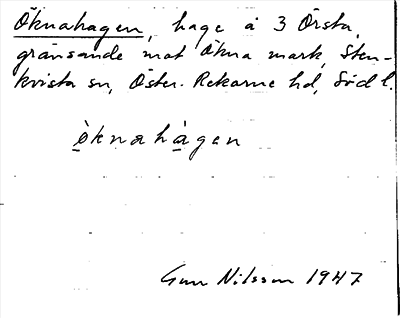 Öknahagen, hage å 3 Örsta,
gränsande mot Ökna mark, Sten-
kvista sn, Öster-Rekarne hd, Söd l.
ö̀knahàgen
Gun Nilsson 1947